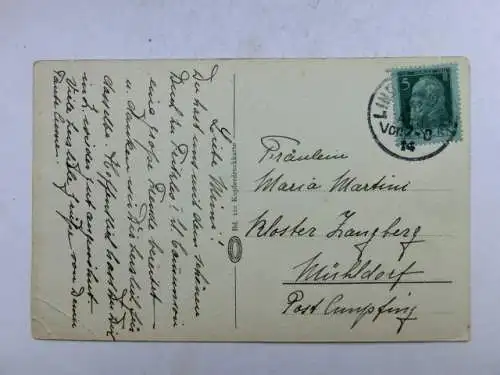 Liebe Mimi!
Du hast uns mit den schönen
Buch
eine große Freude bereitet
u. danken wir Dir herzlich für
dasselbe. Hoffentlich hast Du Dich
wieder gut
Viele herzliche Grüße von Deiner
Tante
Bd. 122 Kupferdruckkarte
5
LIN
Vor. 7-8
14
Fräulein
Maria Martini
Kloster Zangberg
Mühldorf
Post Ampfing